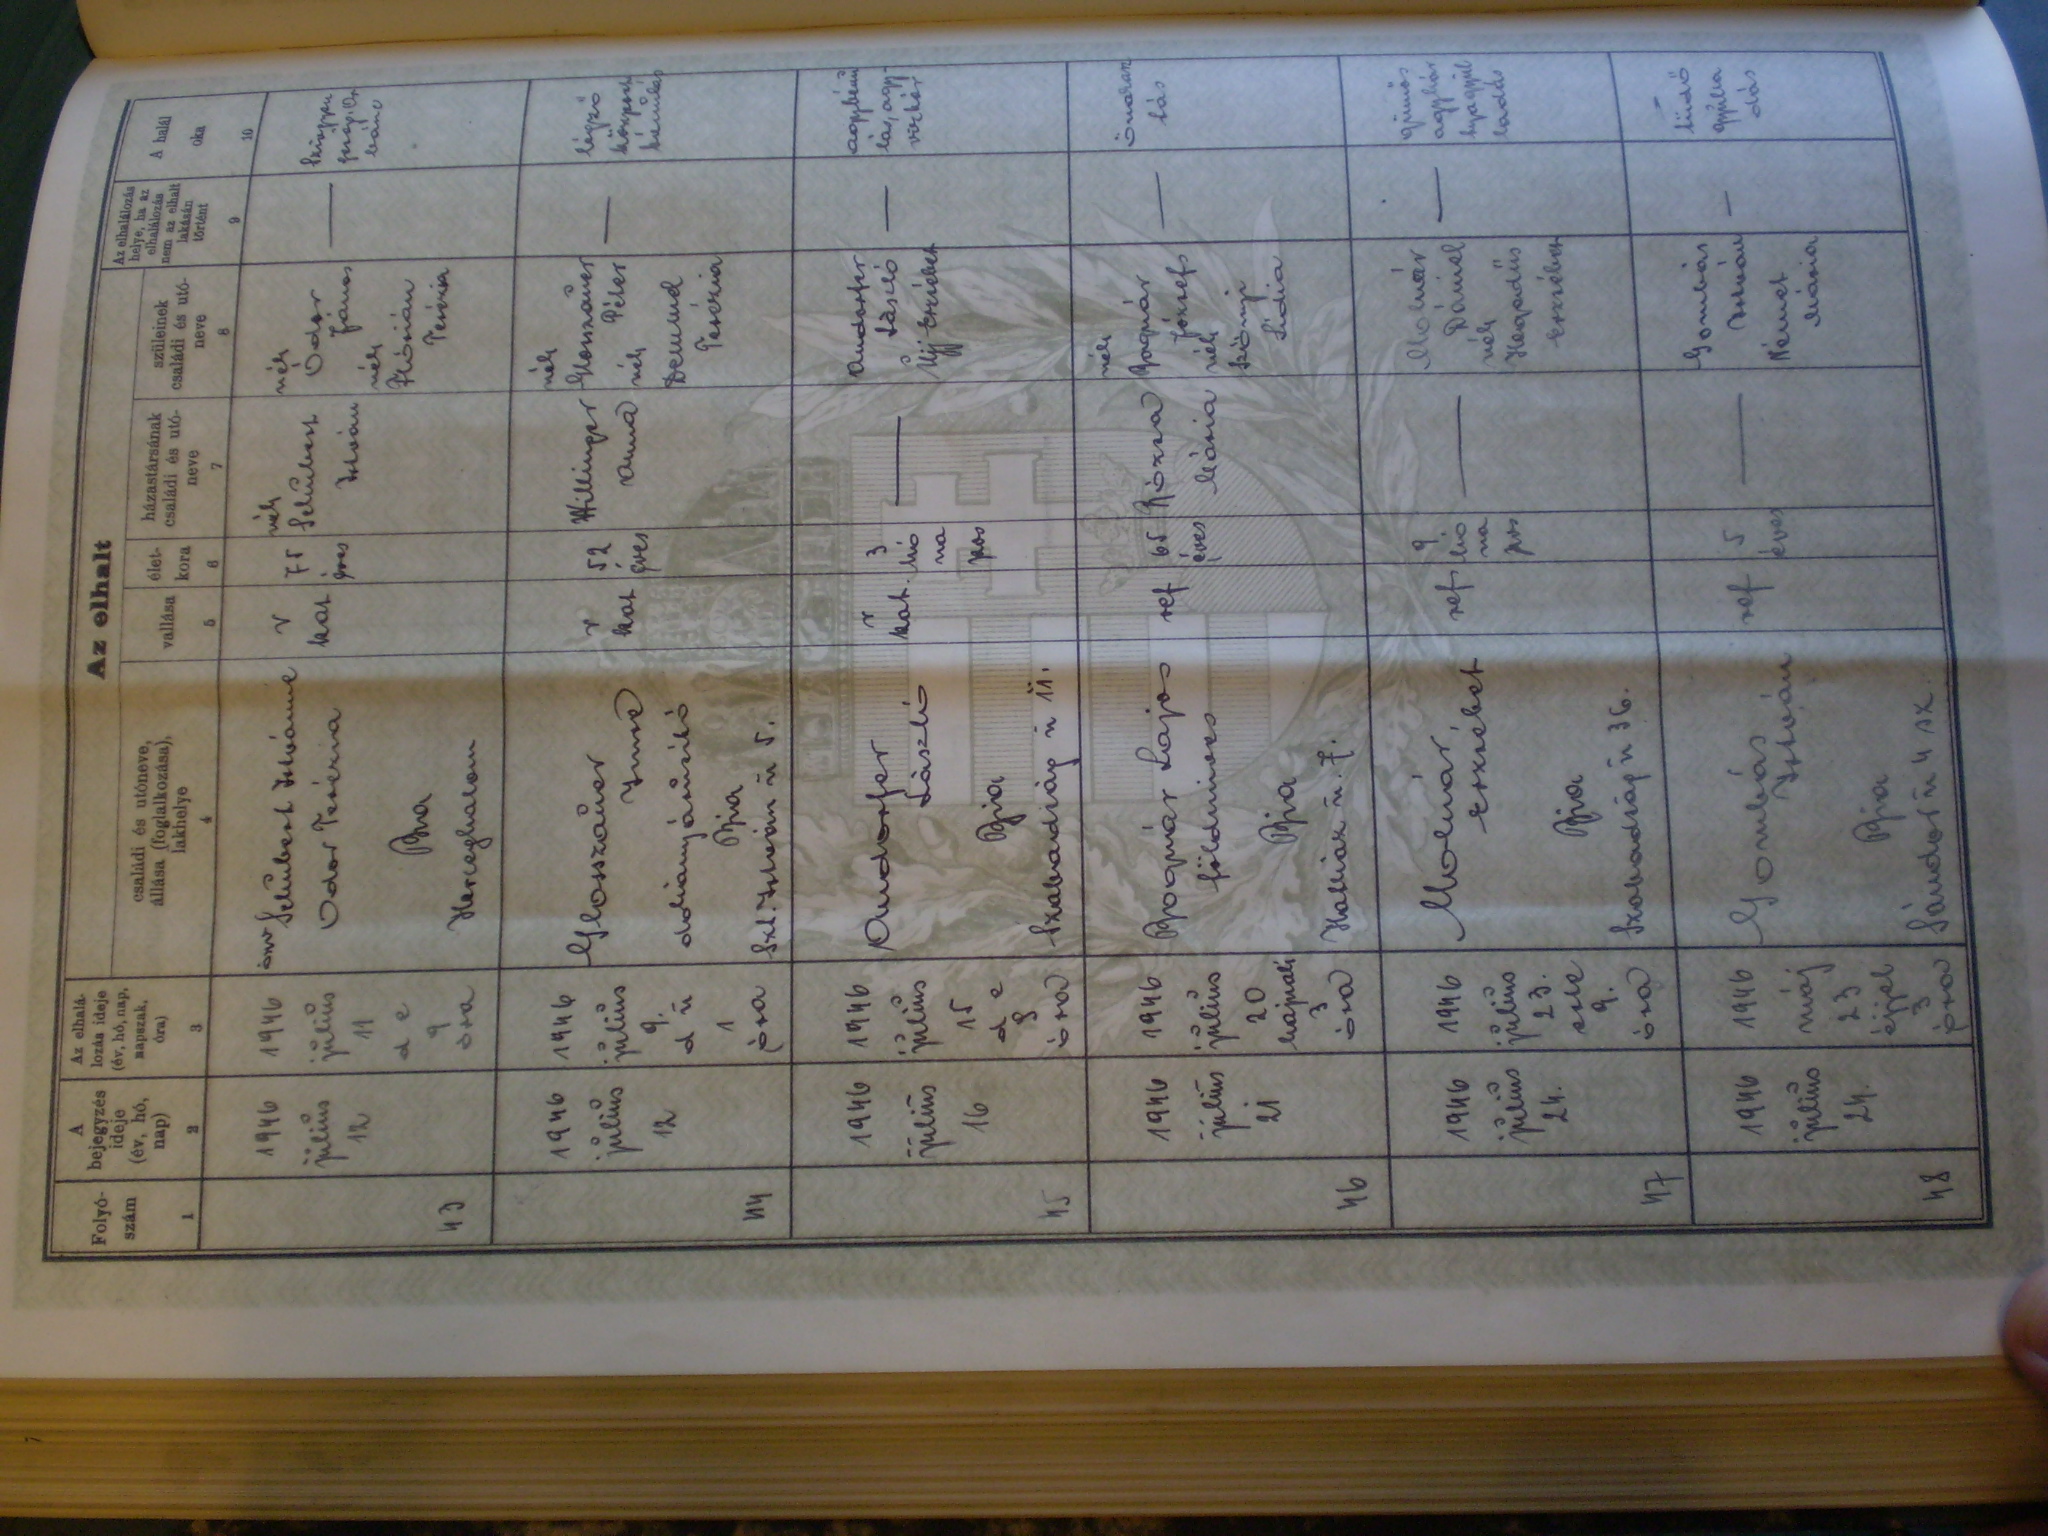 Az elhalt
Folyó-
szám
A
bejegyzés
ideje
(év, hó,
nap)
Az elhalá-
lozás ideje
(év, hó, nap,
napszak,
óra)
családi és utóneve,
állása (foglalkozása),
lakhelye
vallása
élet-
kora
házastársának
családi és utó-
neve
szüleinek
családi és utó-
neve
Az elhalálozás
helye, ha az
elhalálozás
nem az elhalt
lakásán
történt
A halál
oka
1
2
3
4
5
6
7
8
9
10
43
1946
július
12
1946
július
11
d e
9
óra
özv
Istvánné
Odor Terézia
Bia
Herceghalom
r
kat
75
éves
néh
István
néh
Ódor
János
néh
Flórián
Terézia
—
44
1946
július
12
1946
július
9.
d u
1
óra
Glosszauer
Anna
dohányárusító
Bia
Szt. István u 5.
r
kat
52
éves
Willinger
Anna
néh
Glosszauer
Péter
néh
Demmel
Terézia
—
légző
központ
bénulás
45
1946
július
16
1946
július
15
d e
8
óra
Andorfer
László
Bia
Szabadság u 11.
r
kat.
3
hó
na
pos
—
Andorfer
László
Ujj Erzsébet
—
46
1946
július
21
1946
július
20
hajnali
3
óra
Bognár Lajos
földmives
Bia
u. 7.
ref
65
éves
Rózsa
Mária
néh
Bognár
József
néh
Szőnyi
Lidia
—
47
1946
július
24.
1946
július
23.
este
9.
óra
Molnár
Erzsébet
Bia
Szabadság u 36.
ref
9
hó
na
pos
—
Molnár
Dániel
néh
Hegedűs
Erzsébet
—
gümős
agyhár
tyagyul
ladás
48
1946
július
24.
1946
máj
23
éjjel
3
óra
Gombás
István
Bia
Sándor u 4 sz.
ref
5
éves
—
Gombás
István
Német
Mária
—
tüdő
gyulla
dás